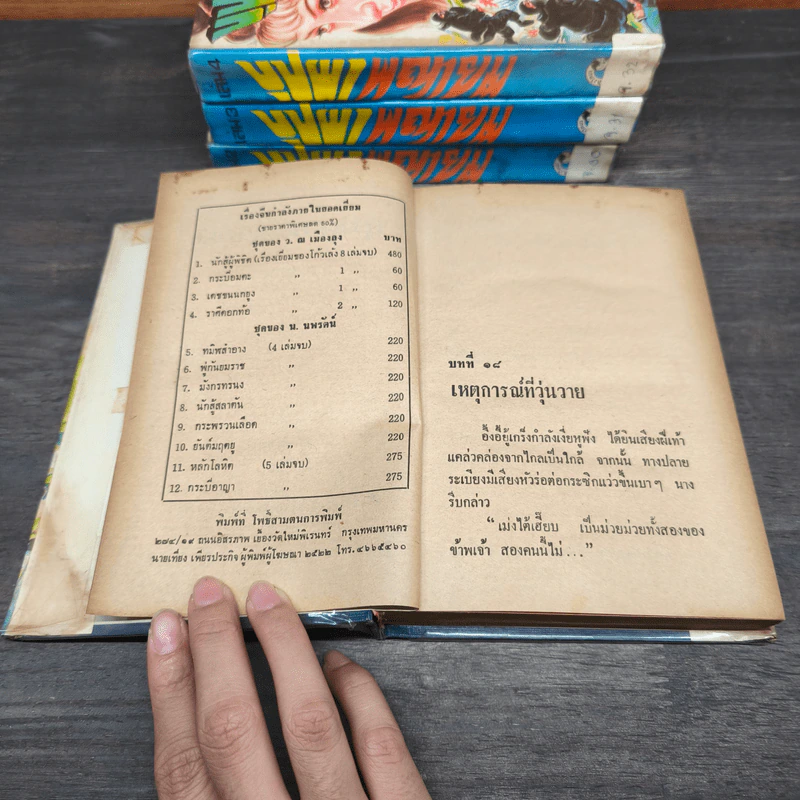 เล่ม 4
เล่ม 3
เรื่องจีนกำลังภายในยอดเยี่ยม
(ขายราคาพิเศษลด ๒๐%)
ชุดของ ว. ณ เมืองลุง บาท
1. นักสู้ผู้พิชิต (เรื่องเยี่ยมของโก้วเล้ง 8 เล่มจบ) 480
2. กระบี่อมตะ ,, 1 ,, 60
3. เดชขนนกยูง ,, 1 ,, 60
4. ราศีดอกท้อ ,, 2 ,, 120
ชุดของ น. นพรัตน์
5. ทมิฬสำอาง (4 เล่มจบ) 220
6. พู่กันยมราช ,, 220
7. มังกรทรนง ,, 220
8. นักสู้สลาตัน ,, 220
9. กระพรวนเลือด ,, 220
10. ยันต์มฤตยู ,, 220
11. หลักโลหิต (5 เล่มจบ) 275
12. กระบี่อาญา ,, 275
พิมพ์ที่ โพธิ์สามต้นการพิมพ์
๒๗๔/๑๙ ถนนอิสรภาพ เยื้องวัดใหม่พิเรนทร์ กรุงเทพมหานคร
นายเที่ยง เพียรประกิจ ผู้พิมพ์ผู้โฆษณา ๒๕๒๒ โทร. ๔๖๖๕๔๖๐
บทที่ ๑๘
เหตุการณ์ที่วุ่นวาย
อั้งอี้ยู้เกร็งกำลังเงี่ยหูฟัง ได้ยินเสียงฝีเท้า
แคล่วคล่องจากไกลเป็นใกล้ จากนั้น ทางปลาย
ระเบียงมีเสียงหัวร่อต่อกระซิกแว่วขึ้นเบา ๆ นาง
รีบกล่าว
“เม่งไต้เฮี๊ยบ เป็นม่วยม่วยทั้งสองของ
ข้าพเจ้า สองคนนี้ไม่ ...”